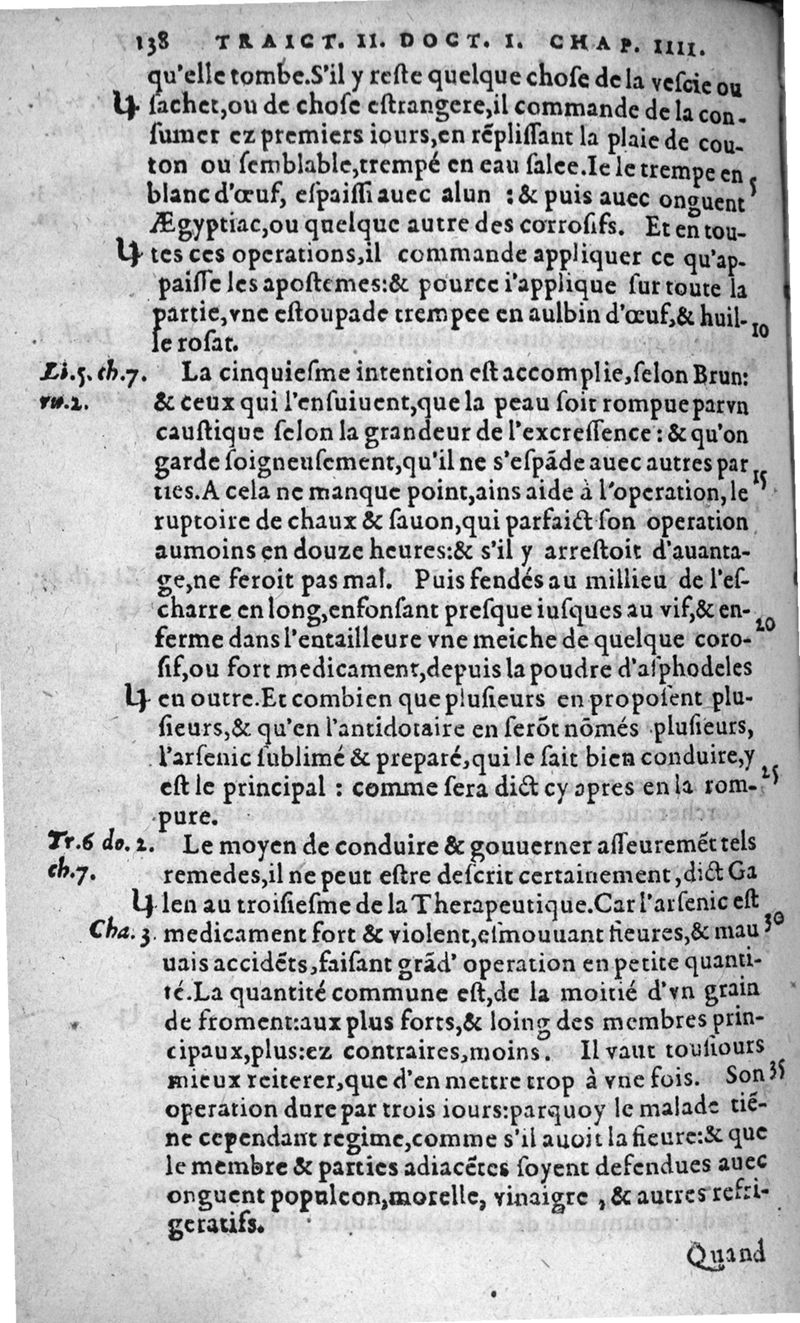 138 TRAICT. II. DOCT. I. CHAP. IIII.
qu'elle tombe.S'il y reſte quelque choſe de la veſcie ou
ſachet,ou de choſe eſtrangere,il commande de la con-
ſumer ez premiers iours,en rēpliſſant la plaie de cou-
ton ou ſemblable,trempé en eau ſalee.Ie le trempe en 5
blanc d'œuf, eſpaiſſi auec alun : & puis auec onguent
Ægyptiac,ou quelque autre des corroſifs. Et en tou-
tes ces operations,il commande appliquer ce qu'ap-
paiſſe les apoſtemes:& pource i'applique ſur toute la
partie,vne eſtoupade trempee en aulbin d'œuf,& huil- 10
le roſat.
Li.5. ch.7. La cinquieſme intention eſt accomplie,ſelon Brun:
ru.2. & ceux qui l'enſuiuent,que la peau ſoit rompue par vn
cauſtique ſelon la grandeur de l'excreſſence : & qu'on
garde ſoigneuſement,qu'il ne s'eſpāde auec autres par 15
ties.A cela ne manque point,ains aide à l'operation,le
ruptoire de chaux & ſauon,qui parfaict ſon operation
aumoins en douze heures:& s'il y arreſtoit d'auanta-
ge,ne feroit pas mal. Puis fendés au millieu de l'eſ-
charre en long,enfonſant preſque iuſques au vif,& en- 20
ferme dans l'entailleure vne meiche de quelque coro-
ſif,ou fort medicament,depuis la poudre d'aſphodeles
en outre.Et combien que pluſieurs en propoſent plu-
ſieurs,& qu'en l'antidotaire en ſerōt nōmés pluſieurs,
l'arſenic ſublimé & preparé,qui le ſait bien conduire,y 25
eſt le principal : comme ſera dict cy apres en la rom-
pure.
Tr.6 do. 2. Le moyen de conduire & gouuerner aſſeuremēt tels
ch.7. remedes,il ne peut eſtre deſcrit certainement,dict Ga
len au troiſieſme de la Therapeutique.Car l'arſenic eſt
Cha. 3. medicament fort & violent,eſmouuant fieures,& mau 30
uais accidēts,faiſant grād' operation en petite quanti-
té.La quantité commune eſt,de la moitié d'vn grain
de froment:aux plus forts,& loing des membres prin-
cipaux,plus:ez contraires,moins. Il vaut touſiours
mieux reiterer,que d'en mettre trop à vne fois. Son 35
operation dure par trois iours:parquoy le malade tiē-
ne cependant regime,comme s'il auoit la fieure:& que
le membre & parties adiacētes ſoyent defendues auec
onguent populeon,morelle, vinaigre , & autres refri-
geratifs.
Quand